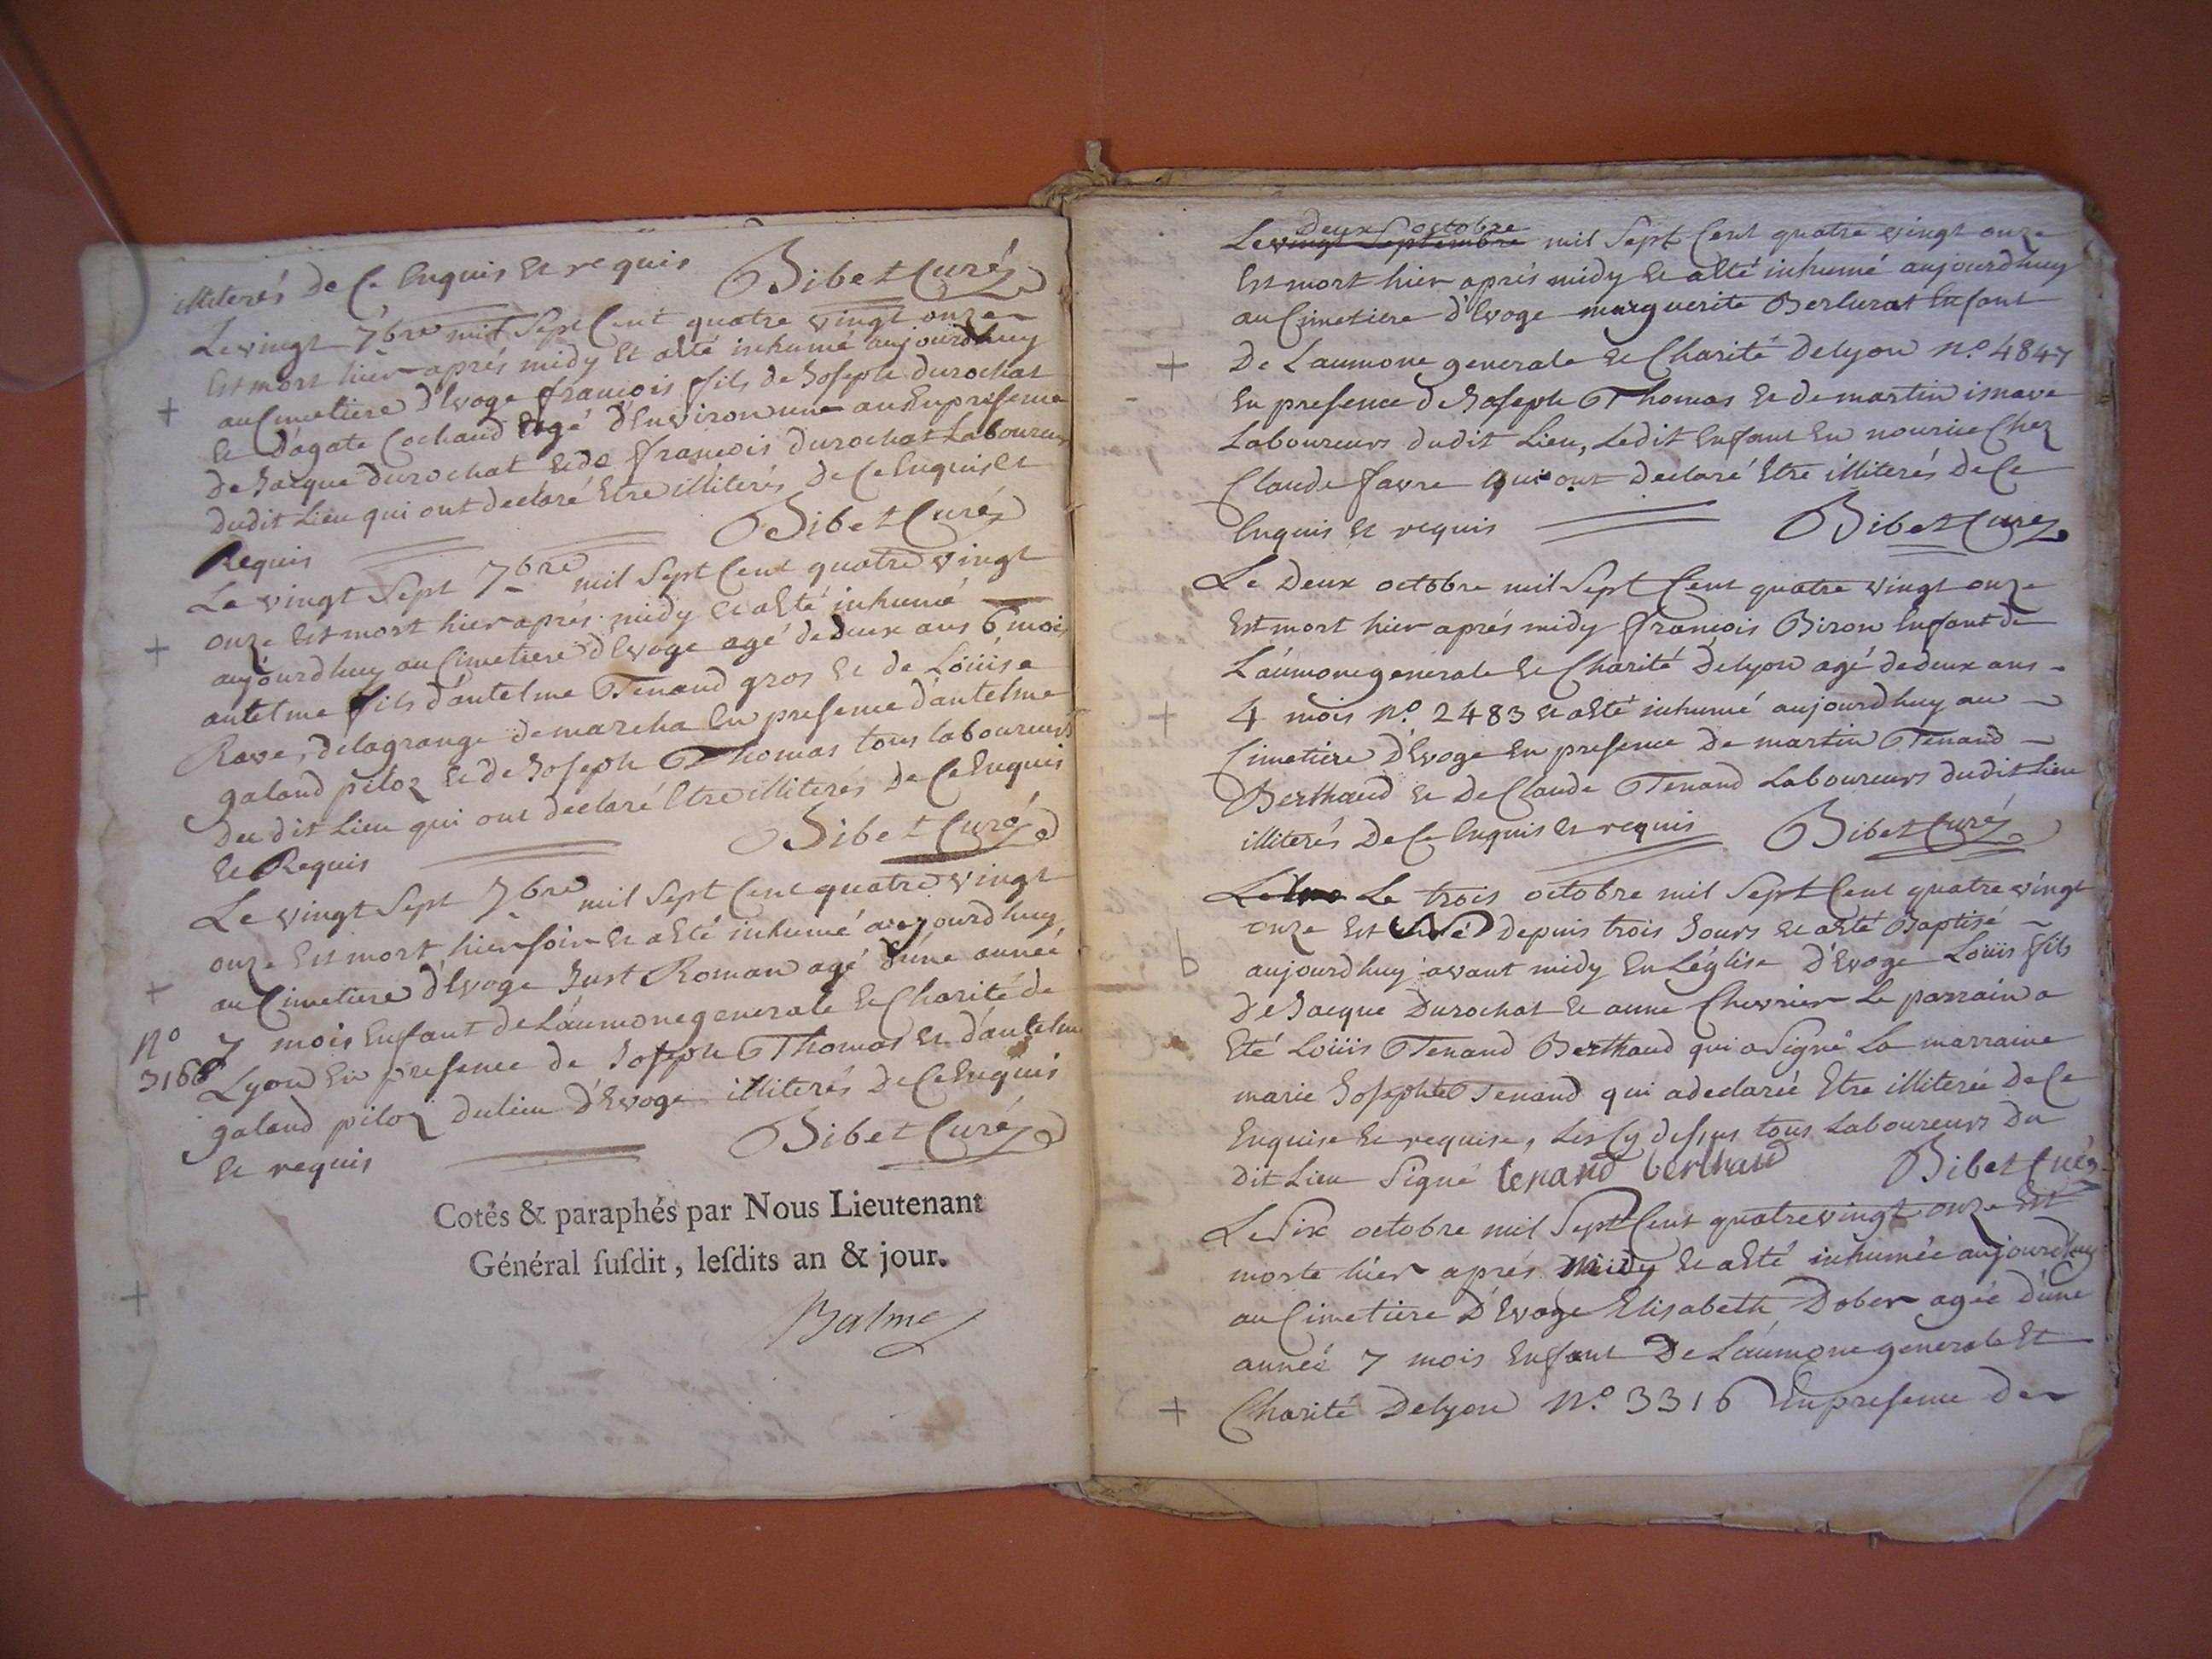 illiterés de Ce Enquis et requis Bibet Curé
Le vingt 7bre mil Sept Cent quatre vingt onze
Est mort hier aprés midy Et a Eté inhumé aujourdhuy
au Cimetiere d'Evoge francois fils de Joseph durochat
et D'agate Cochaud agé d'Environ une an En presence
de Jacque durochat et de francois durochat Laboureurs
dudit Lieu qui ont declaré Etre illiterés de Ce Enquis et
Requis Bibet Curé
Le vingt Sept 7bre mil Sept Cent quatre vingt
onze Est mort hier aprés midy et a Eté inhumé
aujourdhuy au Cimetiere d'Evoge agé de deux ans 6 mois
antelme fils d'antelme Tenand gros et de Loüise
Rave, delagrange de marcha En presence d'antelme
galand piloz et de Joseph Thomas tous laboureurs
du dit Lieu qui ont declaré Etre illiterés de Ce Enquis
et Requis Bibet Curé
Le vingt Sept 7bre mil Sept Cent quatre vingt
onze Est mort hier soir et a Eté inhumé aujourdhuy
au Cimetiere d'Evoge Just Roman agé d'une année
N° 7 mois Enfant de L'aumone generale et Charité de
3166 Lyon En presence de Joseph Thomas et d'antelme
galand piloz du lieu d'Evoge illiterés de Ce Enquis
et requis Bibet Curé
Cotés & paraphés par Nous Lieutenant
Général ſuſdit, leſdits an & jour.
Balme
deux octobre
Le vingt Septembre mil Sept Cent quatre vingt onze
Est mort hier aprés midy et a Eté inhumé aujourdhuy
au Cimetiere d'Evoge marguerite Berlurat Enfant
+ De Laumone generale et Charité de lyon N° 4847
En presence de Joseph Thomas et de martin isnave
Laboureurs dudit Lieu, Ledit Enfant En nourice Chez
Claude favre qui ont declaré Etre illiterés de Ce
Enquis et requis Bibet Curé
Le Deux octobre mil Sept Cent quatre vingt onze
Est mort hier aprés midy francois Biron Enfant de
L'aumone generale et Charité de lyon agé de deux ans
+ 4 mois N° 2483 et a Eté inhumé aujourdhuy au
Cimetiere d'Evoge En presence de martin Tenand
Berthaud et de Claude Tenand Laboureurs dudit Lieu
illiterés de Ce Enquis et requis Bibet Curé
Le trois octobre mil Sept Cent quatre vingt
onze Est Né depuis trois Jours et a Eté Baptisé
b aujourdhuy avant midy En L'église d'Evoge Loüis fils
de Jacque Durochat et anne Chevrier Le parrain a
Eté Loüis Tenand Berthaud qui a Signé La marraine
marie Josephte Tenand qui a declarée Etre illiterée de Ce
Enquise et requise, Les Cy dessus tous Laboureurs du
dit Lieu Signé tenand berthaud Bibet Curé
Le Six octobre mil Sept Cent quatre vingt onze Est
morte hier aprés midy et a Eté inhumée aujourdhuy
au Cimetiere D'Evoge Elisabeth Dober agée d'une
année 7 mois Enfant de L'aumone generale Et
+ Charité de lyon N° 3316 En presence de